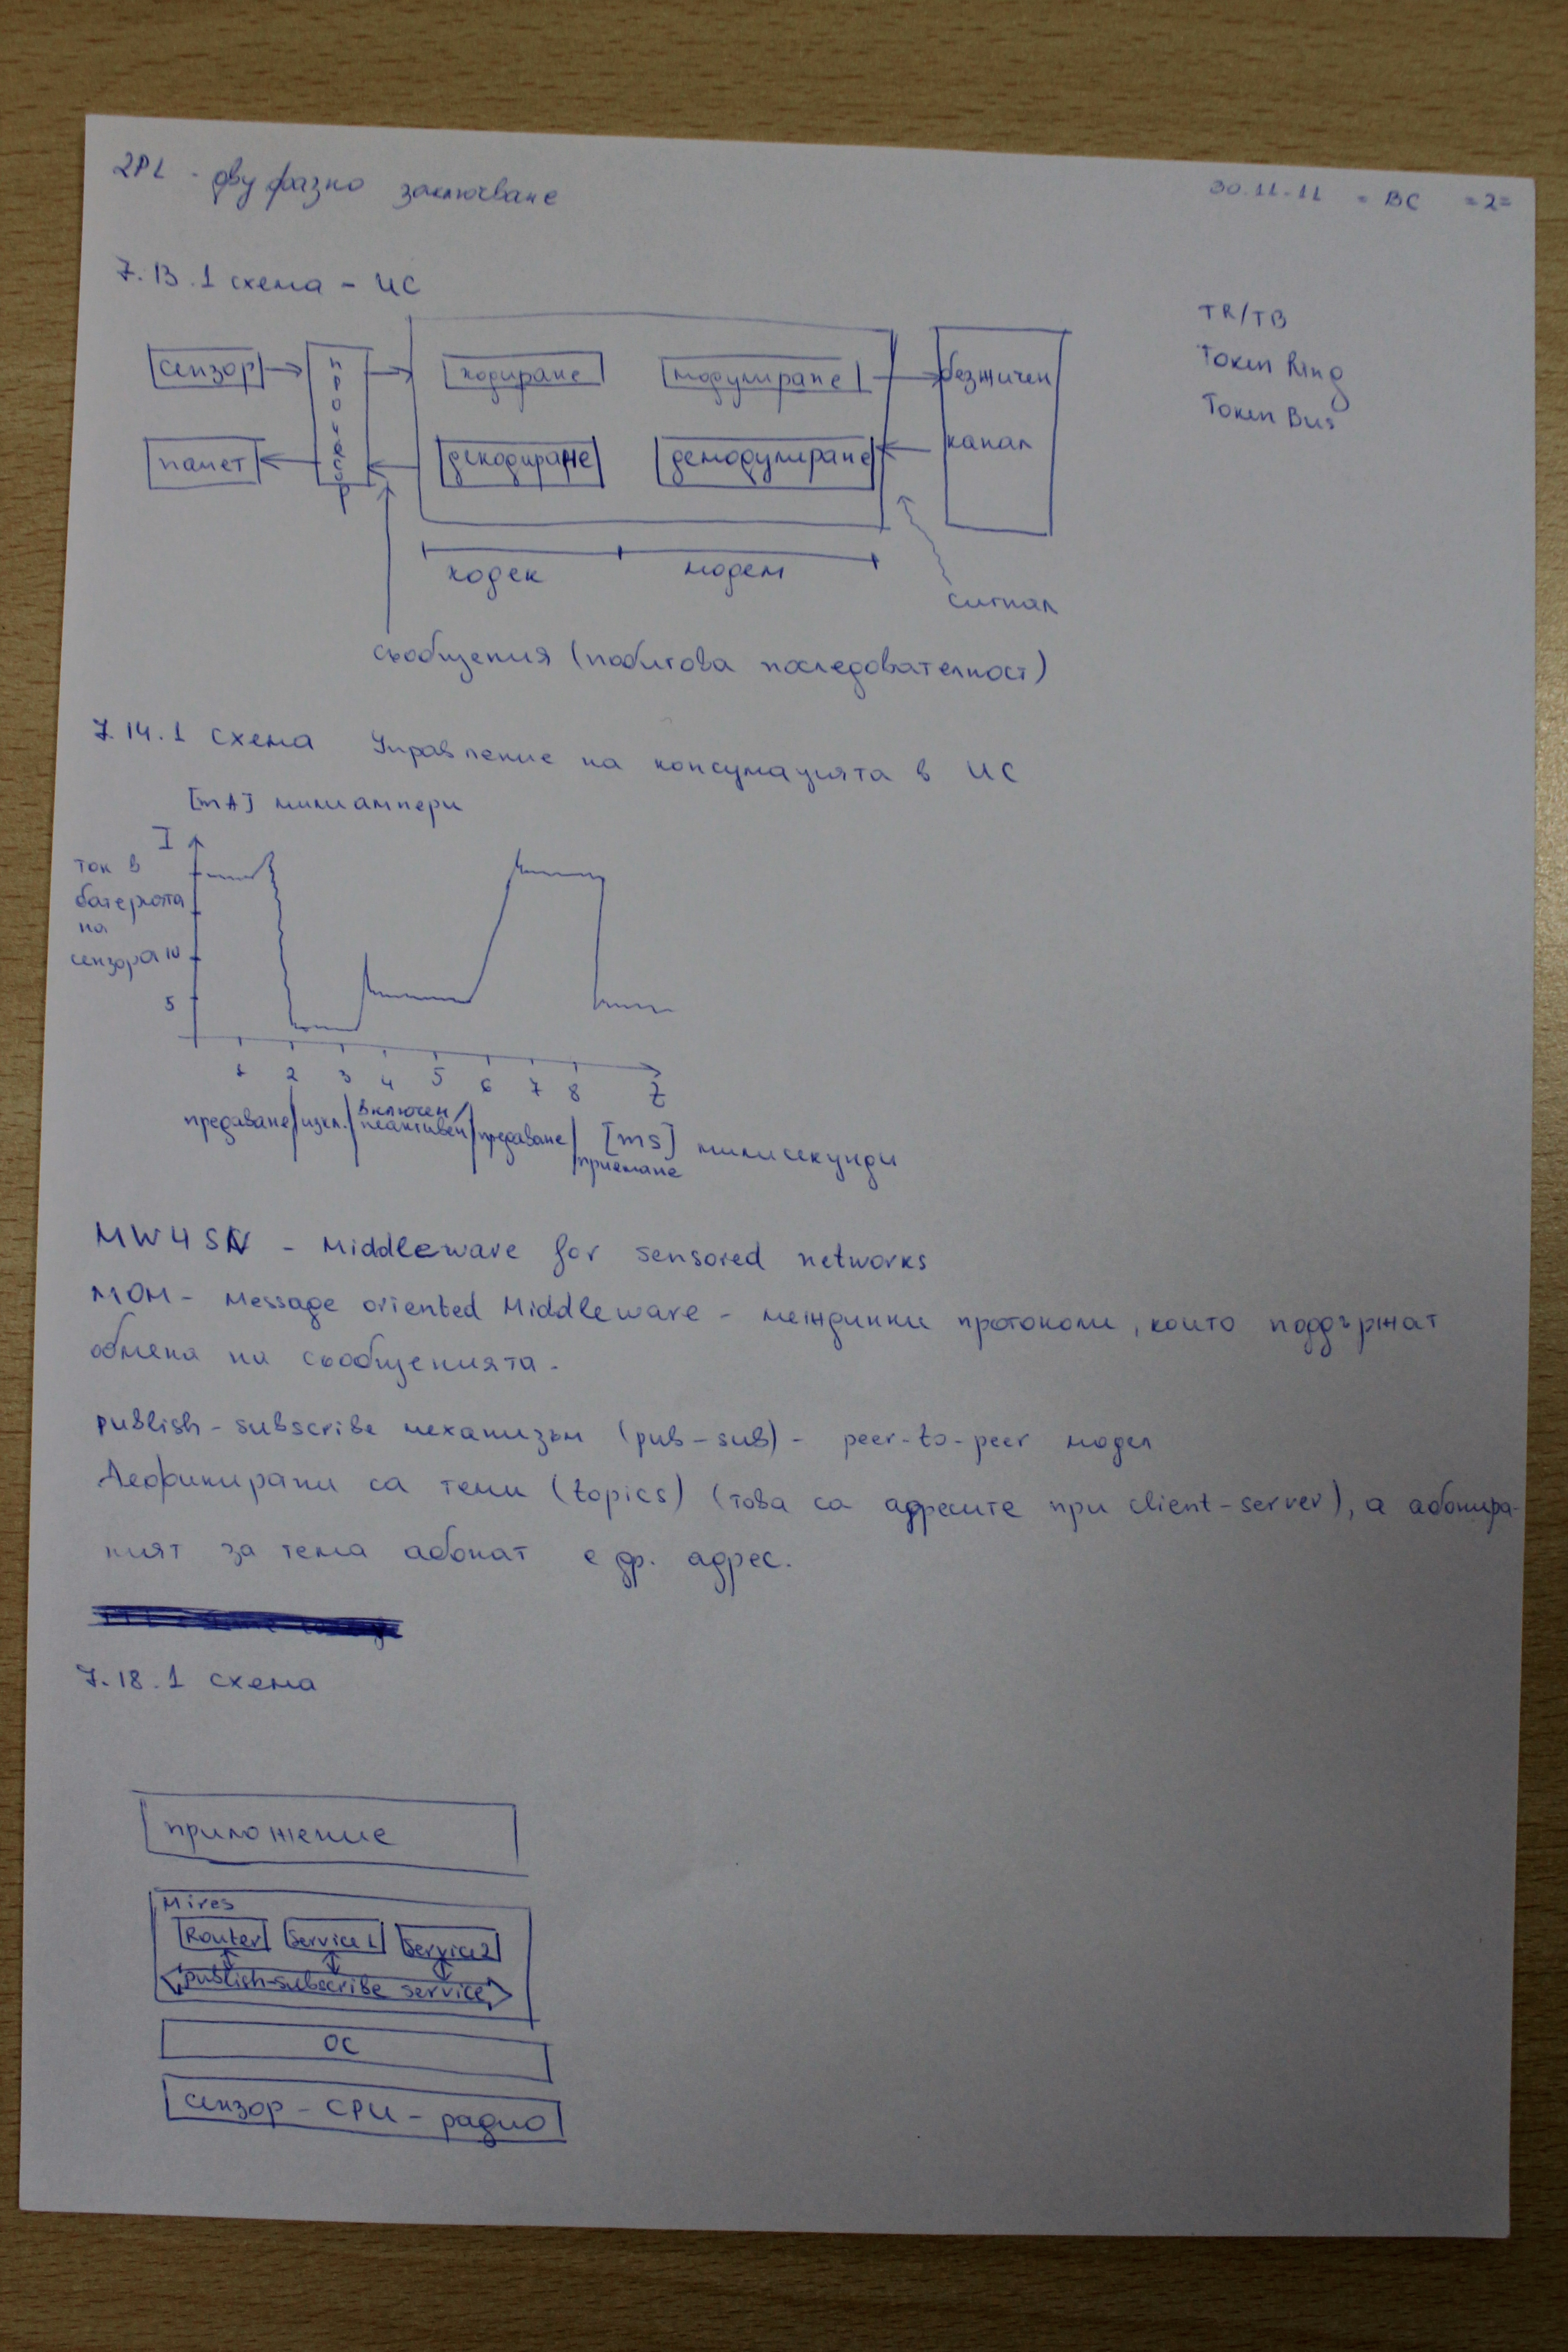 2PL - двуфазно заключване
30.11.11 - ВС =2=
7.13.1 схема - ИС
TR/TB
Token Ring
Token Bus
сензор
процесор
кодиране
модулиране
безжичен
памет
декодиране
демодулиране
канал
кодек
модем
сигнал
съобщения (побитова последователност)
7.14.1 схема Управление на консумацията в ИС
[mA] милиампери
I
ток в
батерията
на
сензора 10
5
1 2 3 4 5 6 7 8 t
предаване изкл. включен/ неактивен предаване приемане [ms] милисекунди
MW4SN - Middleware for sensored networks
MOM - Message oriented Middleware - междинни протоколи, които поддържат
обмена на съобщенията.
publish-subscribe механизъм (pub-sub) - peer-to-peer модел
Дефинирани са теми (topics) (това са адресите при client-server), а абонира-
ният за тема абонат е др. адрес.
7.18.1 схема
приложение
Mires
Router Service1 Service2
publish-subscribe service
ОС
сензор - CPU - радио